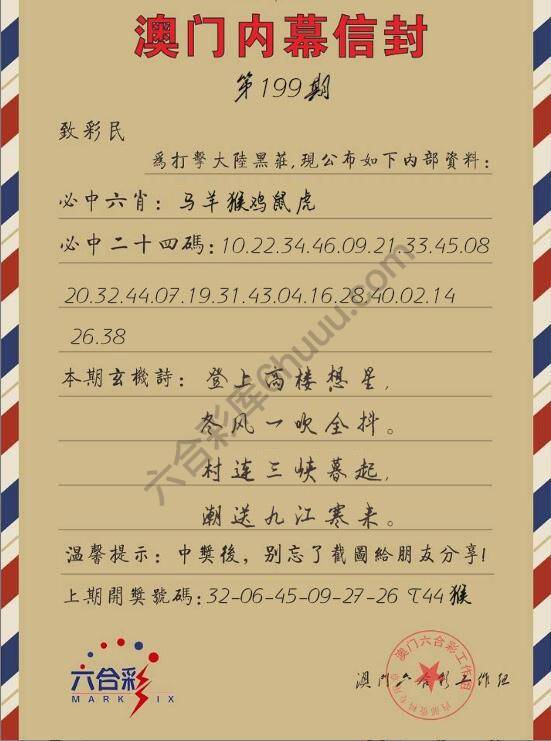 澳门内幕信封
第199期
致彩民
為打擊大陸黑莊,现公布如下内部資料:
必中六肖:马羊猴鸡鼠虎
必中二十四碼:10.22.34.46.09.21.33.45.08
20.32.44.07.19.31.43.04.16.28.40.02.14
26.38
本期玄機詩:登上高楼想星,
冬风一吹全抖。
村连三峡暮起,
潮送九江寒来。
温馨提示:中獎後,别忘了截圖給朋友分享!
上期開獎號碼:32-06-45-09-27-26 T44猴
六合彩库6huuu.com
六合彩
MARK SIX
澳门六合彩工作组
澳门六合彩工作组